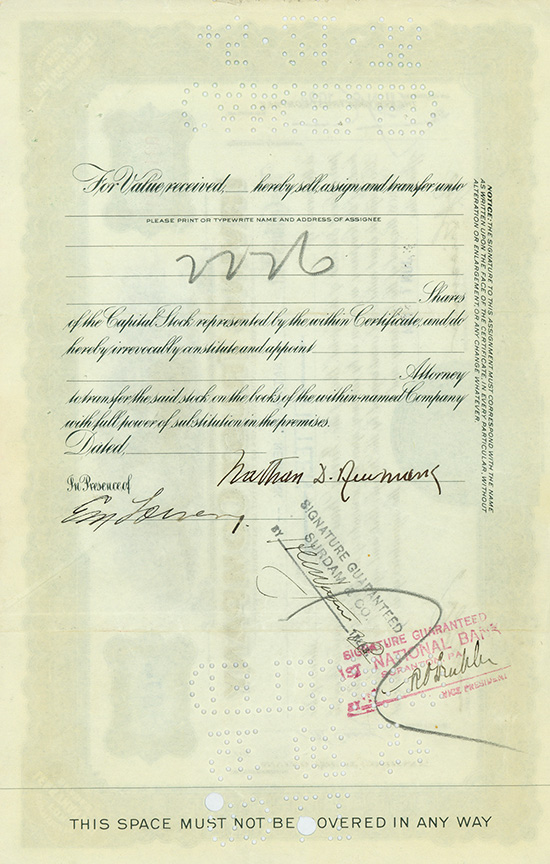 For Value received, ___ hereby sell, assign and transfer unto
PLEASE PRINT OR TYPEWRITE NAME AND ADDRESS OF ASSIGNEE
Shares
of the Capital Stock represented by the within Certificate, and do
hereby irrevocably constitute and appoint
Attorney
to transfer the said stock on the books of the within-named Company
with full power of substitution in the premises.
Dated,
Nathan D. Newman
In Presence of
SIGNATURE GUARANTEED
SURDAM & CO.
BY
SIGNATURE GUARANTEED
1ST NATIONAL BANK
SCRANTON, PA.
BY
VICE PRESIDENT
NOTICE: THE SIGNATURE TO THIS ASSIGNMENT MUST CORRESPOND WITH THE NAME
AS WRITTEN UPON THE FACE OF THE CERTIFICATE, IN EVERY PARTICULAR, WITHOUT
ALTERATION OR ENLARGEMENT, OR ANY CHANGE WHATEVER.
THIS SPACE MUST NOT BE OVERED IN ANY WAY